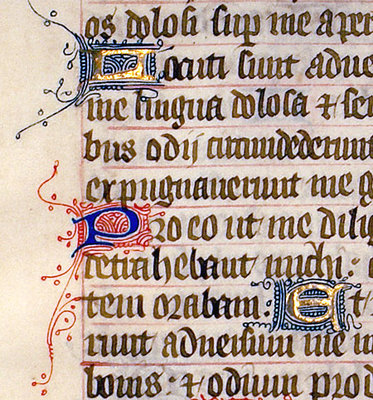 os dolosi sup me aper
Locuti sunt adue
me lingua dolosa ⁊ ser
bus odij circumdederunt
expugnauerunt me g
Pro eo ut me dili
detrahebant michi:
tem orabam: Et
runt aduersum me m
bonis: ⁊ odium pro d